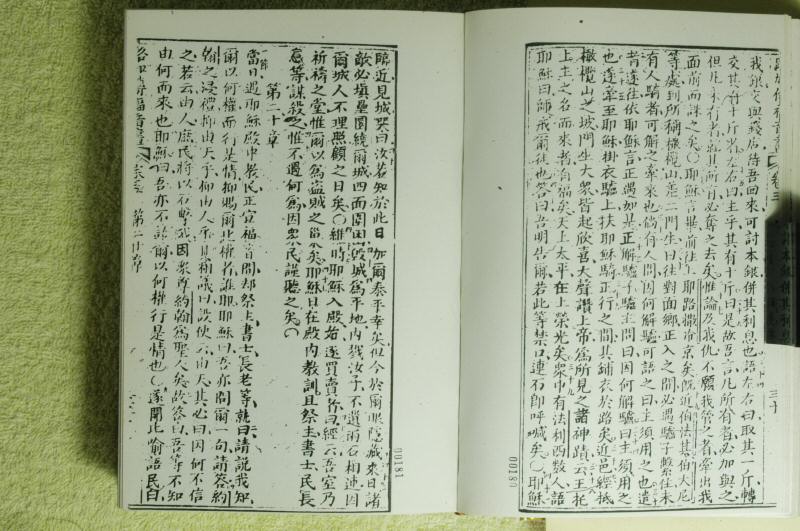 我銀交與錢店待吾回來可討本銀併其利息也語左右曰取其一斤轉
交其有十斤者左右曰主乎其有十斤曰是故吾言凡所有者必加與之
但凡未有者就其所有必奪之去矣惟論及我仇不願我管之者牽出我
面前而誅之矣〇耶穌言畢前往上耶路撒冷京矣既近伯法其伯大尼
等處到所稱橄欖山差二門生曰往對面鄉正入之間必遇驢子繫住未
有人騎者可解之牽來也倘有人問因何解驢可語之曰主須用之也遣
者遂往依耶穌言正遇如是正解驢子驢主問曰因何解驢曰主須用之
也遂牽至耶穌掛衣驢上扶耶穌騎正行之間其鋪衣於路矣近邑經抵
橄欖山之坡門生大眾皆起欣喜大聲讚上帝為所見之諸神蹟云王托
上主之名而來者有福矣天上太平在上榮光矣眾中有法利西數人語
耶穌曰師戒爾徒也答曰吾明告爾若此等禁口連石即呼喊矣〇耶穌
三十
00180
臨近見城哭曰汝若知於此日加爾泰平幸矣但今於爾眼隱藏來日諸
敵必填壘圍繞爾城四面圍困毀城為平地內戮汝子不遺兩石相連因
爾城人不理照顧之日矣〇維時耶穌入殿始逐買賣你曰經云吾室乃
祈禱之堂惟爾以為盜賊之巢矣耶穌日在殿內教訓且祭主書士民長
意等謀殺之惟不遇何為因眾民謹聽之矣〇
第二十章
一節
當日遇耶穌殿中教民正宣福音間却祭主書士長老等就曰請說我知
爾以何權而行是情抑賜爾此權者誰耶耶穌曰吾亦問爾一句請答約
翰之浸禮抑由天乎抑由人乎其相議曰設使云由天其必曰因何不信
之若云由人庶民將以石擊我因眾尊約翰為聖人矣故答曰吾等不知
由何而來也耶穌曰吾亦不語爾以何權行是情也〇遂開此喻語民曰
第二十章
00181